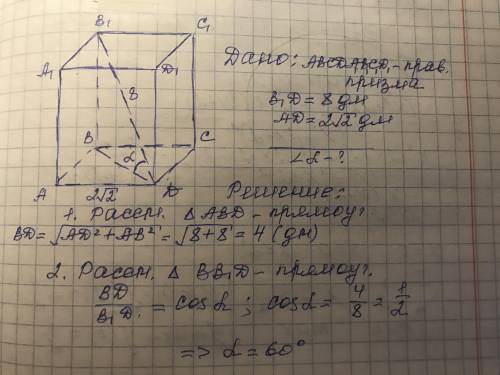 B₁
C₁
A₁
D₁
8
B
C
α
A
2√2
D
Дано: ABCDA₁B₁C₁D₁ - прав.
призма
B₁D = 8 дм
AD = 2√2 дм
∠α - ?
Решение:
1. Рассм. △ABD - прямоуг.
BD = √AD² + AB² = √8 + 8 = 4 (дм)
2. Рассм. △BB₁D - прямоуг.
BD/B₁D = cos α ; cos α = 4/8 = 1/2
=> α = 60°